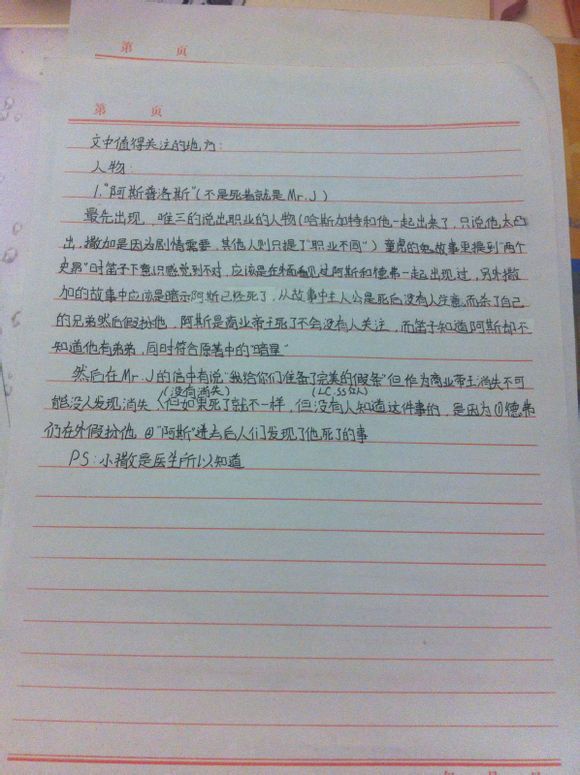 第 页
第 页
文中值得关注的地方：
人物：
1."阿斯普洛斯"（不是死者就是Mr.J）
最先出现，唯三的说出职业的人物（哈斯加特和他一起出来了，只说他太凸
出，撒加是因为剧情需要，其他人则只提了"职业不同"）童虎的故事里提到"两个
史昂"时笛子下意识感觉到不对，应该是在外面看见过阿斯和德弗一起出现过，另外撒
加的故事中应该是暗示阿斯已经死了，从故事中主人公是死后没有人注意，而杀了自己
的兄弟然后假扮他，阿斯是商业帝王死了不会没有人关注，而笛子知道阿斯却不
知道他有弟弟，同时符合原著中的"暗星"
然后在Mr.J的信中有说"我给你们准备了完美的假条"但作为商业帝王消失不可
（没有消失） （LC,SS众人）
能没人发现消失 但如果死了就不一样，但没有人知道这件事的，是因为①德弗
仍在外假扮他 ②"阿斯"进去后人们发现了他死了的事
PS：小撒是医生所以知道